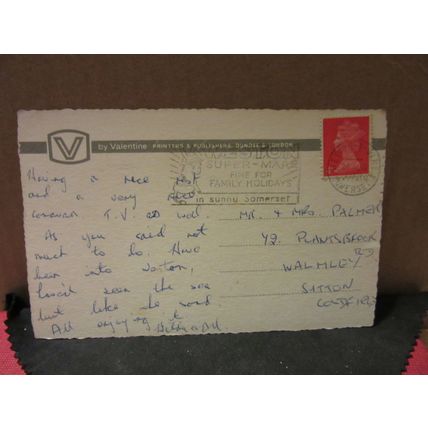 V by Valentine PRINTERS & PUBLISHERS, DUNDEE & LONDON
WESTON
SUPER-MARE
FINE FOR
FAMILY HOLIDAYS
in sunny Somerset
SOMERSET
Having a nice rest
and a very nice
T.V. as well.
As you said not
much to do. Have
been into Weston,
hasn't seen the sea
but like the sand.
All enjoying it
MR. & MRS. PALMER
42 PLANTSBROOK RD
WALMLEY
SUTTON
COLDFIELD